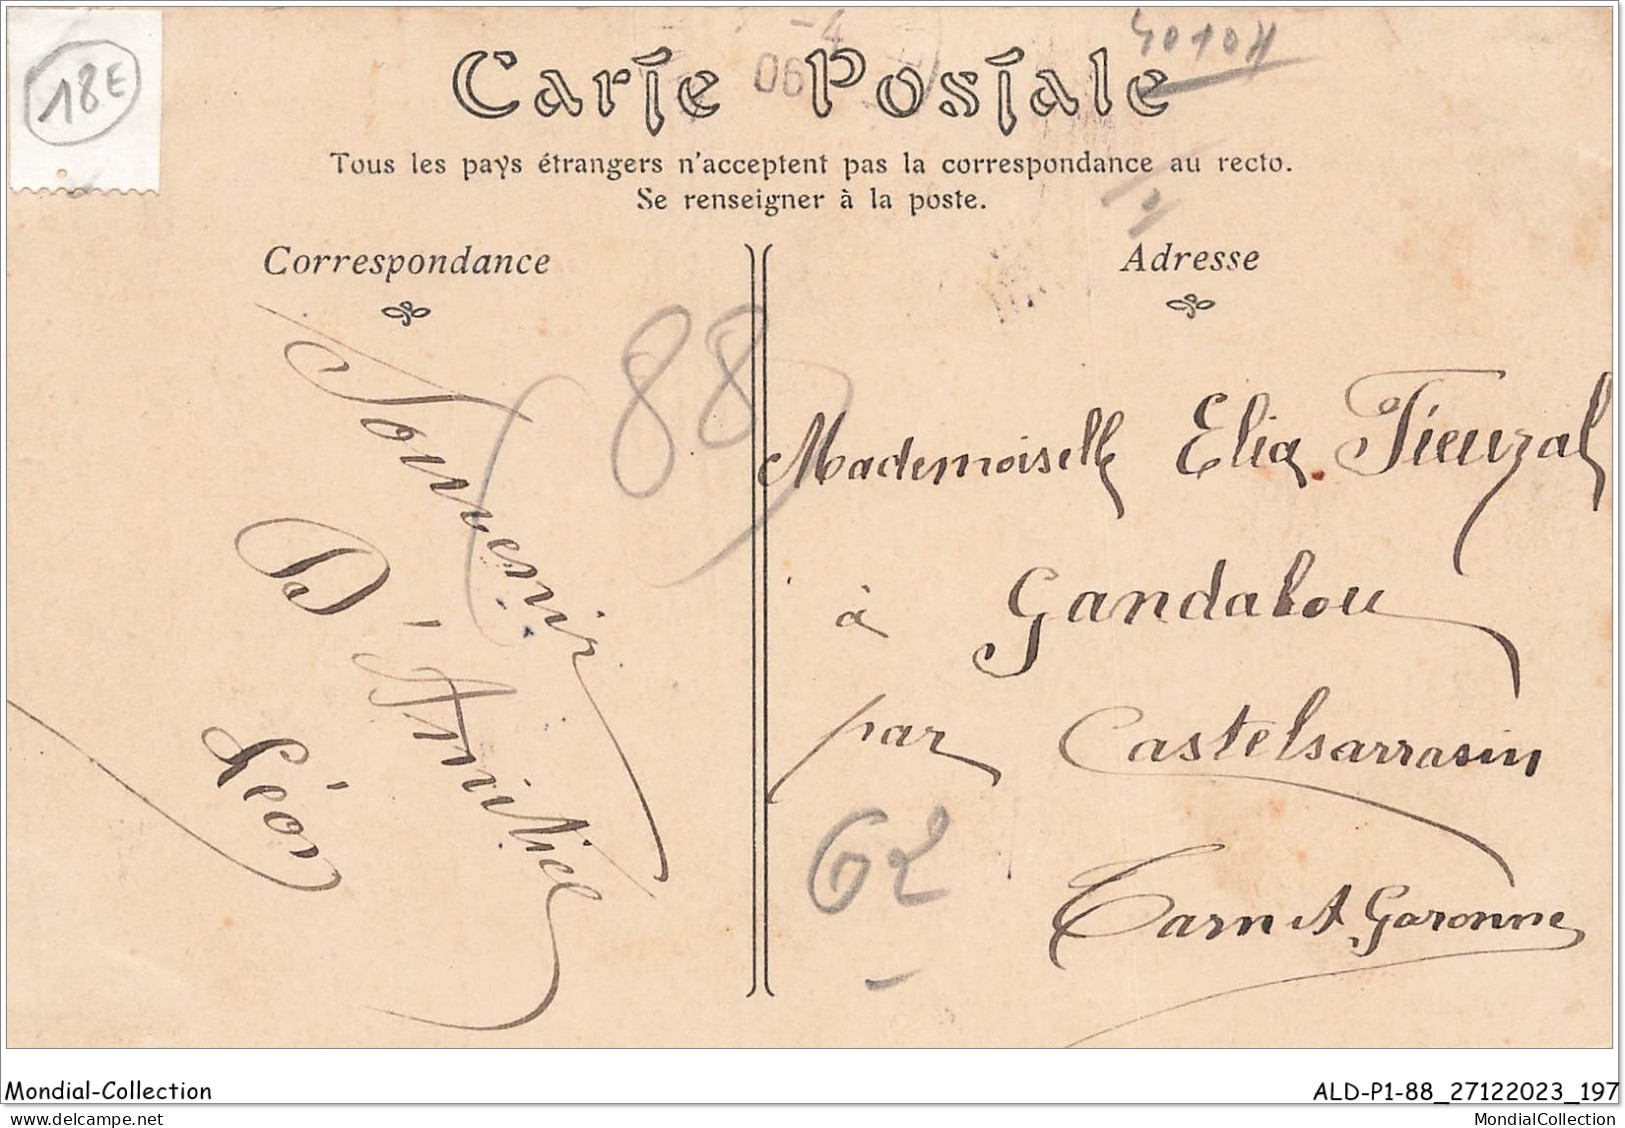 18E
-4
06
4010H
Carte Postale
Tous les pays étrangers n'acceptent pas la correspondance au recto.
Se renseigner à la poste.
Correspondance
Souvenir
D'Amitié
Léon
88
Adresse
Mademoiselle Elia Fieuzal
à Gandalou
par Castelsarrasin
Tarn et Garonne
62
Mondial-Collection
ALD-P1-88_27122023_197
MondialCollection